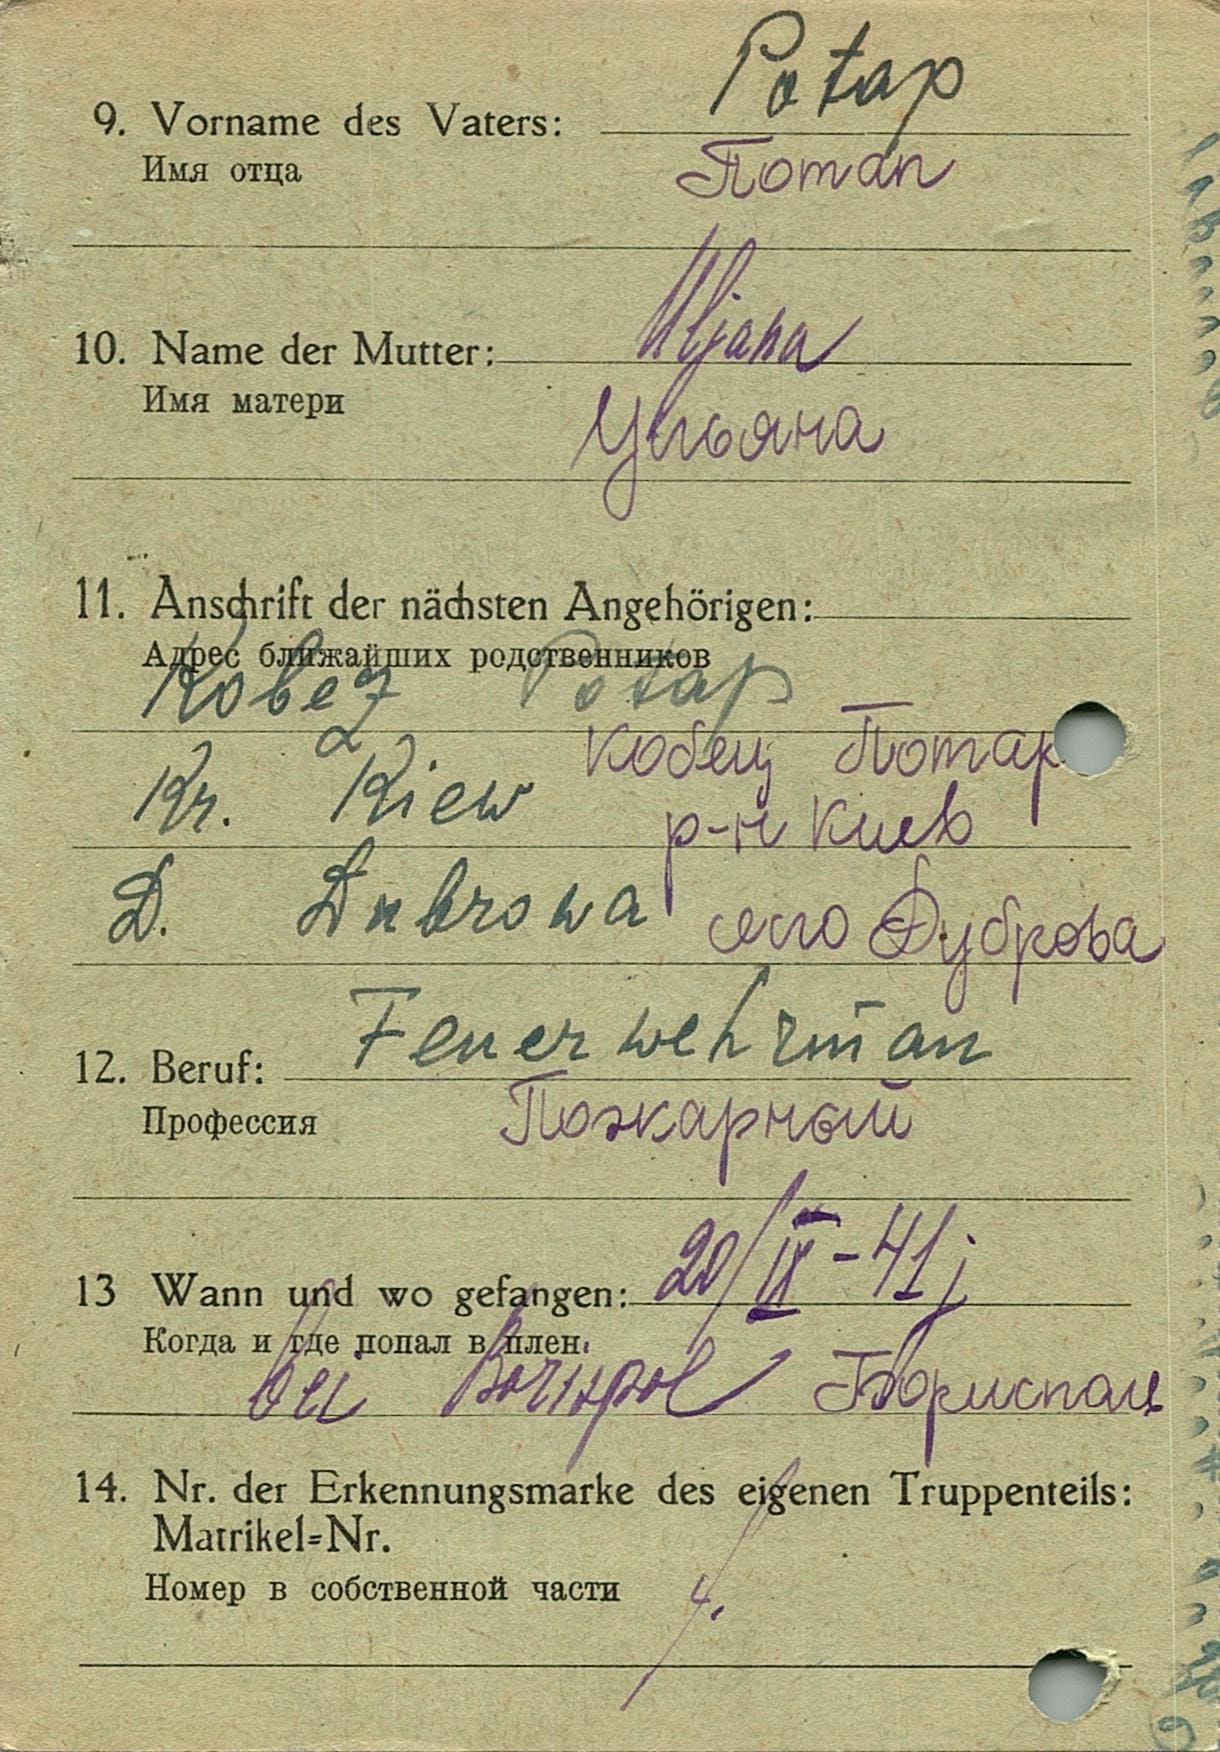 Potap
9. Vorname des Vaters:
Имя отца
Потап
10. Name der Mutter: Uljana
Имя матери
Ульяна
11. Anschrift der nächsten Angehörigen:
Адрес ближайших родственников
Kobez Potap
Кобец Потап
Kr. Kiew
р-н Киев
D. Dubrowa
село Дуброва
Feuerwehrm̄an
12. Beruf:
Профессия
Пожарный
13 Wann und wo gefangen: 20/IX-41j
Когда и где попал в плен.
bei Borispol Борисполь
14. Nr. der Erkennungsmarke des eigenen Truppenteils:
Matrikel=Nr.
Номер в собственной части